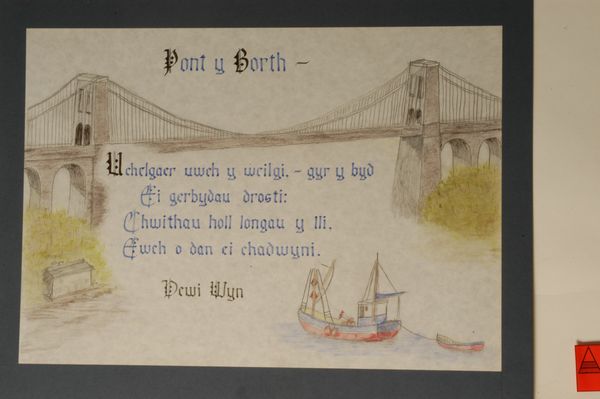 Pont y Borth –
Uchelgaer uwch y weilgi, – gyr y byd
Ei gerbydau drosti:
Chwithau holl longau y lli,
Ewch o dan ei chadwyni.
Dewi Wyn